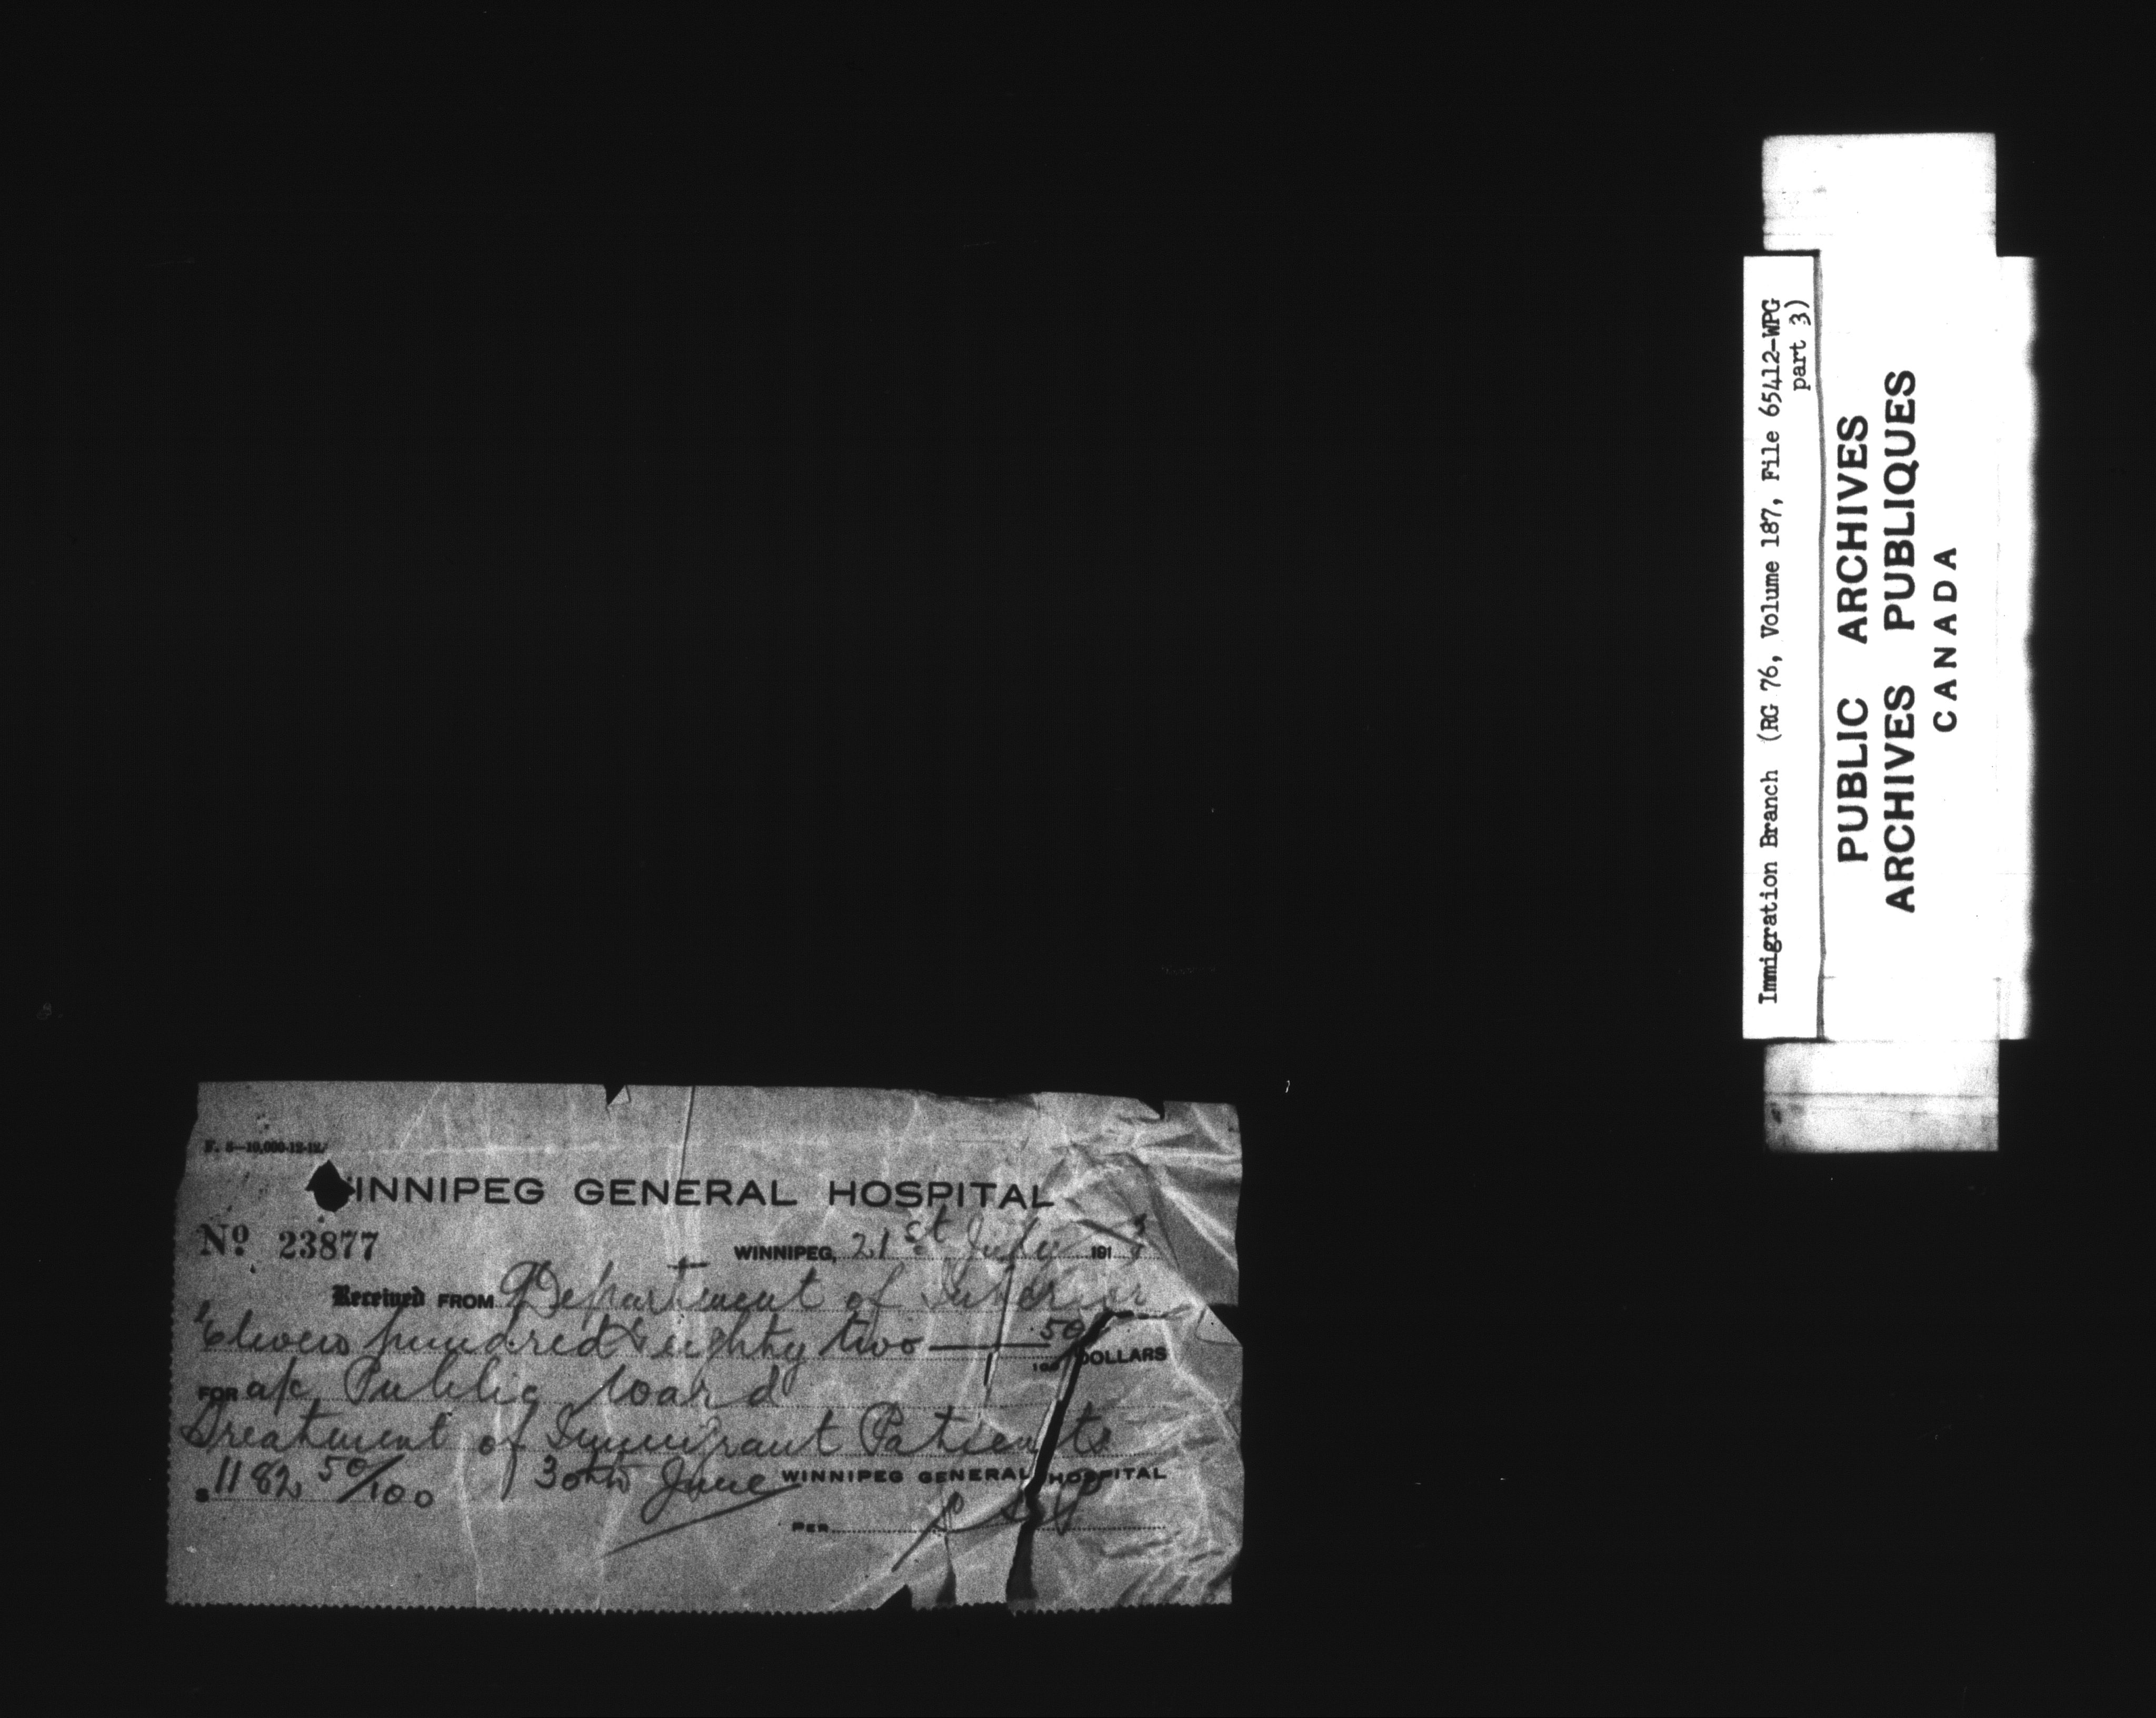 F. 5—10,000-12-12.
WINNIPEG GENERAL HOSPITAL
Nº 23877
WINNIPEG, 21st July 1913
Received FROM Department of Interior
Eleven hundred & eighty two 50
100 DOLLARS
FOR a/c Public Ward
Treatment of Immigrant Patients
$ 1182 50/100 30th June WINNIPEG GENERAL HOSPITAL
PER
Immigration Branch (RG 76, Volume 187, File 65412-WPG
part 3)
PUBLIC ARCHIVES
ARCHIVES PUBLIQUES
CANADA